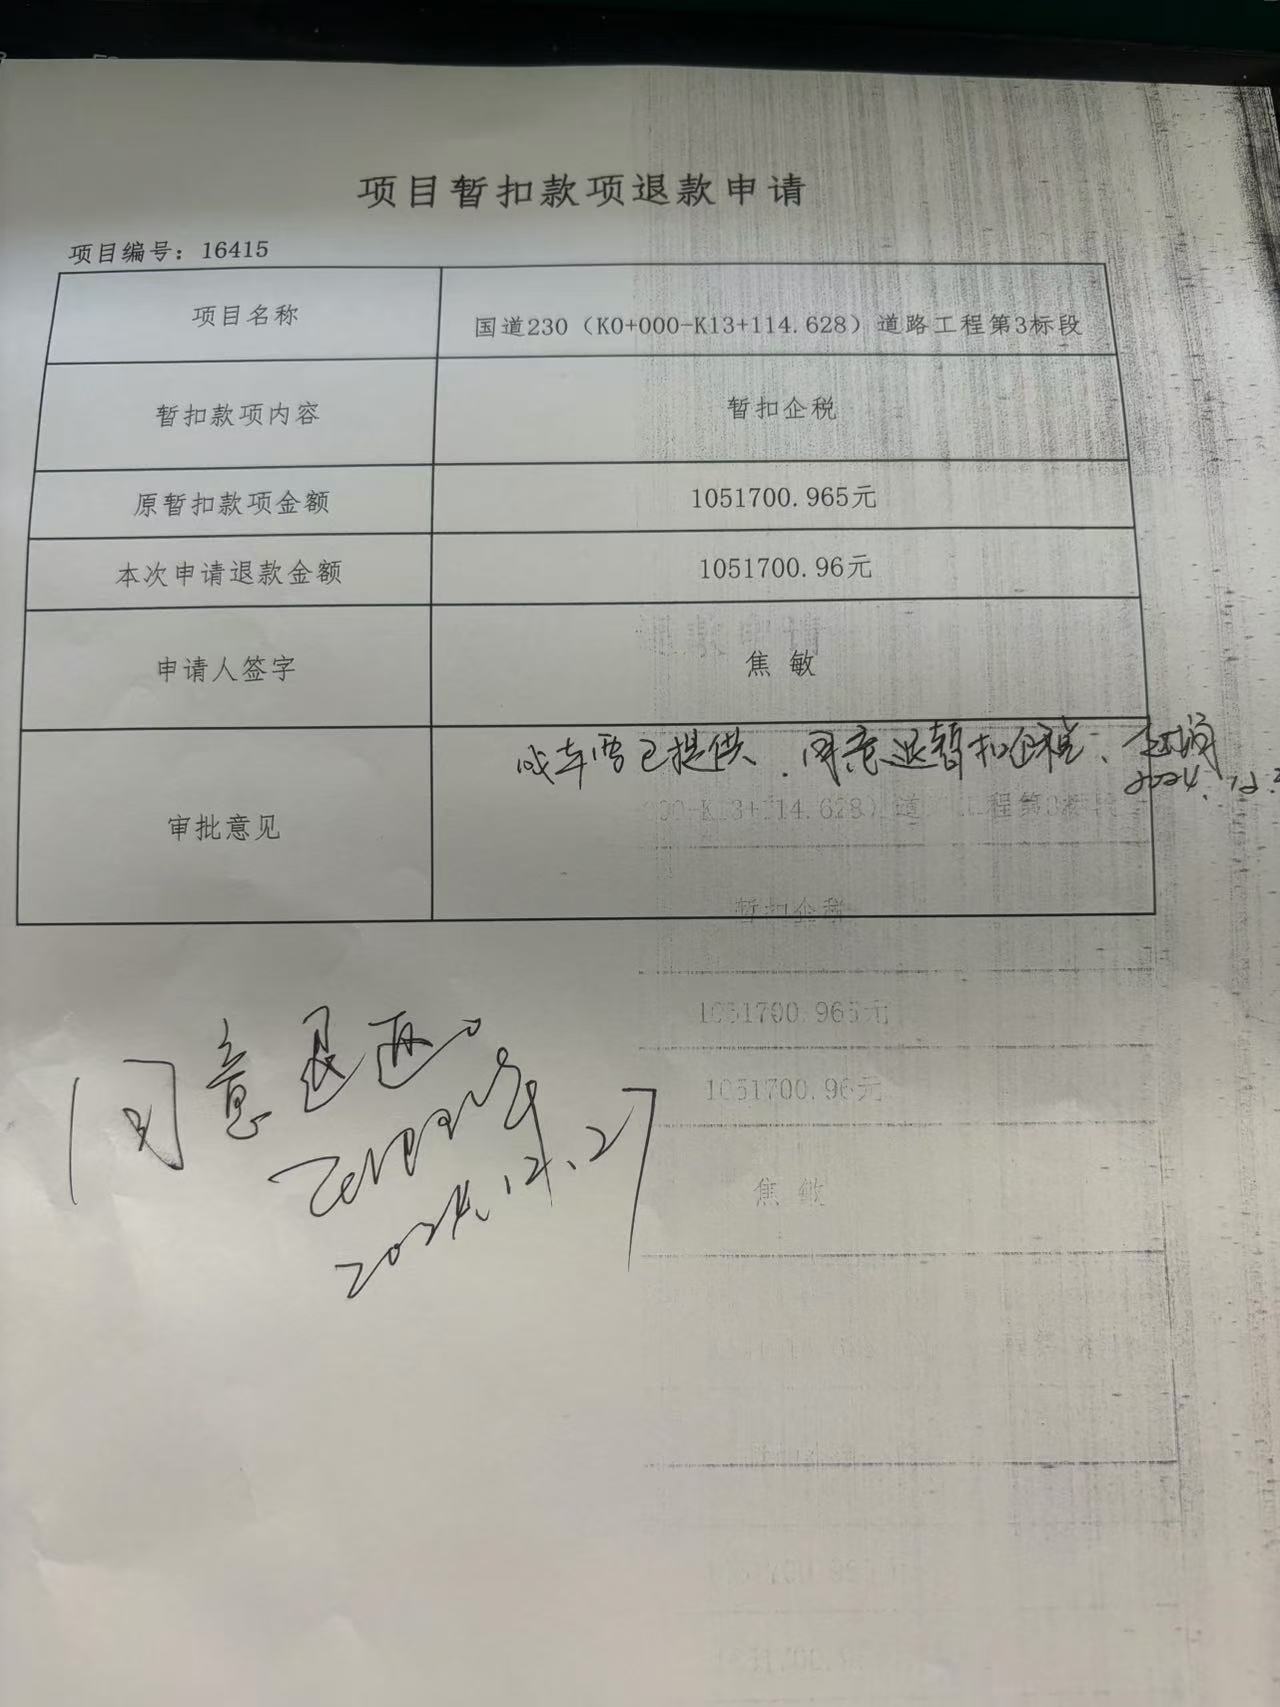 项目暂扣款项退款申请
项目编号：16415
项目名称
国道230（K0+000-K13+114.628）道路工程第3标段
暂扣款项内容
暂扣企税
原暂扣款项金额
1051700.965元
本次申请退款金额
1051700.96元
申请人签字
焦 敏
审批意见
成本票已提供，同意退暂扣企税、
2024.12.
暂扣企税
1051700.965元
1051700.96元
焦 敏
同意退还。
2024.12.27